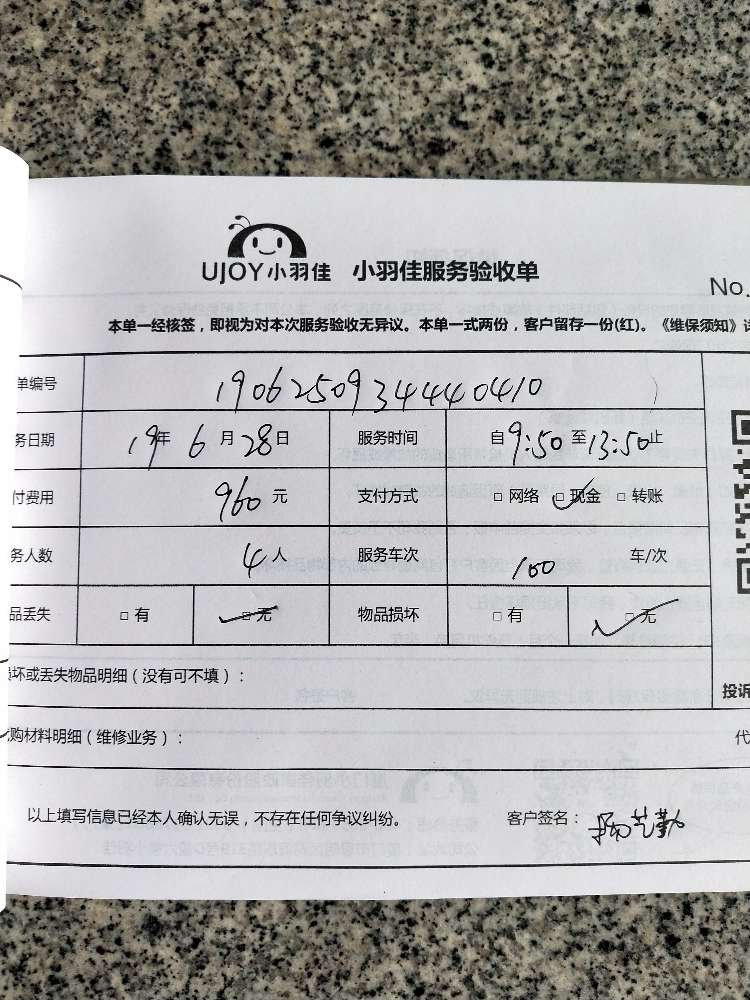 UJOY小羽佳 小羽佳服务验收单
No.
本单一经核签，即视为对本次服务验收无异议。本单一式两份，客户留存一份(红)。《维保须知》详
单编号 1906250934440410
务日期 19年 6月28日 服务时间 自9:50至13:50止
付费用 960元 支付方式 □ 网络 □ 现金 □ 转账
务人数 4人 服务车次 100 车/次
品丢失 □ 有 □ 无 物品损坏 □ 有 □ 无
损坏或丢失物品明细（没有可不填）：
投诉
购材料明细（维修业务）：
代
以上填写信息已经本人确认无误，不存在任何争议纠纷。 客户签名：